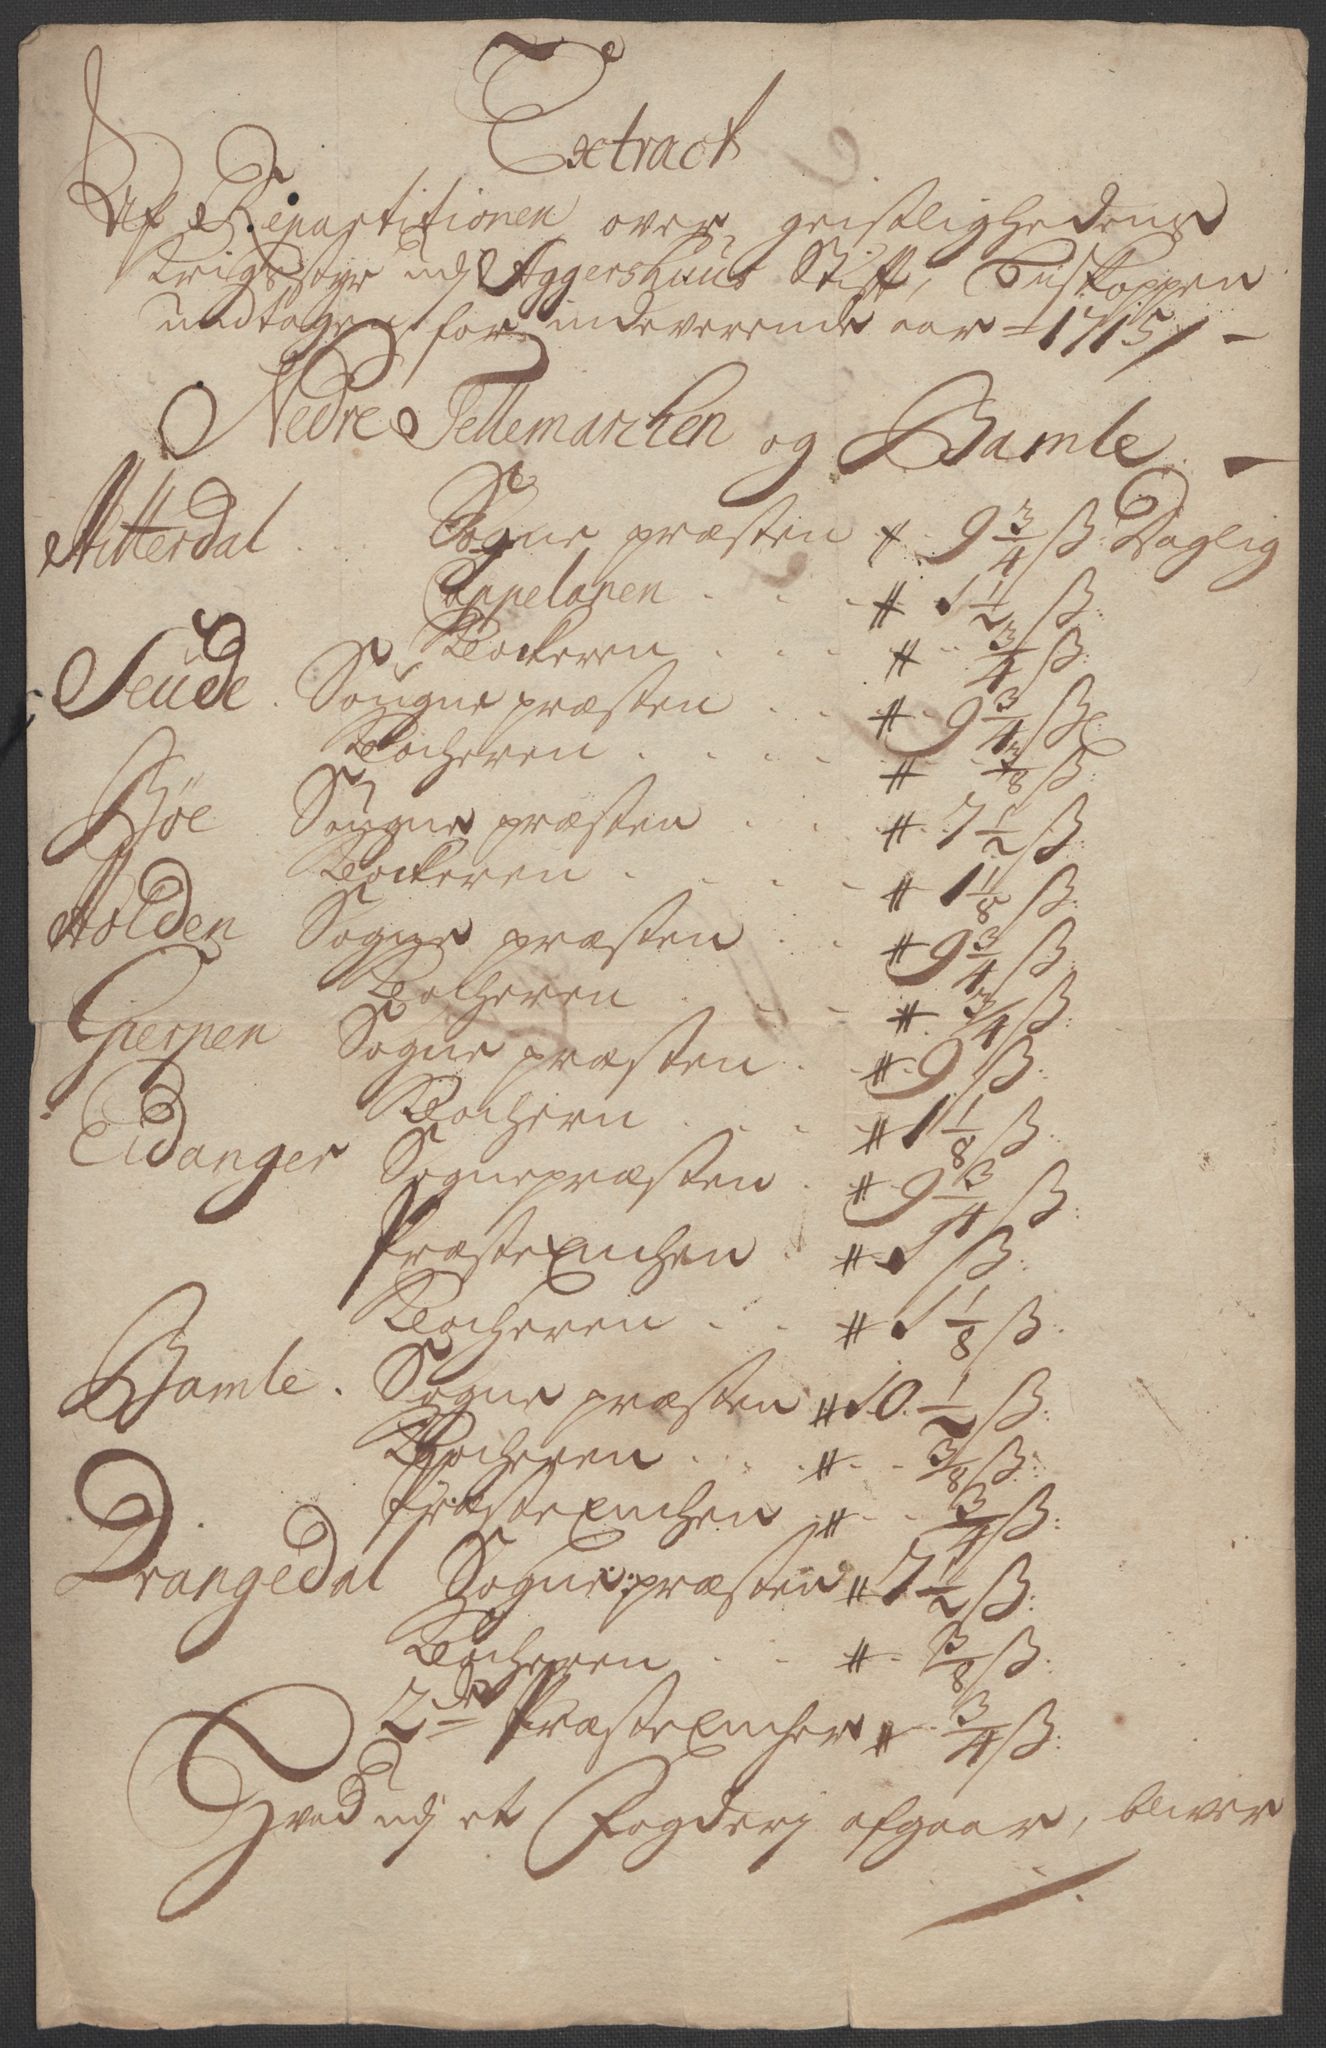 Extract
Af Repartitionen over geistlighedens
Krigsstyr udj Aggershuus Stift, Biskoppen
undtagen for indeverende aar 1715 -
Nedre Tellemarchen og Bamle -
Hitterdal . . Sogne præsten # 9 3/4 ß: Daglig
Cappelanen . . . # 1 1/2 ß:
Klockeren . . . # 3/4 ß:
Seude . Sougne præsten . . # 9 3/4 ß:
Klocheren . . . . # 3/8 ß:
Bøe Sougne præsten . . # 7 1/2 ß:
Klockeren . . . . # 1 1/8 ß:
Holden Sogne præsten . . # 9 3/4 ß:
Klocheren . . . # 3/4 ß:
Gierpen Sogne præsten . . # 9 ß:
Klochern . . . # 1 1/8 ß:
Eidanger Sognepræsten . # 9 3/4 ß:
Præste Enchen . # 1 ß:
Klocheren . . # 1 1/8 ß:
Bamle . Sogne præsten # 10 1/2 ß:
Klocheren . . . # 3/8 ß:
Præste Enchen # . . 3/4 ß:
Drangedal Sogne præsten # 7 1/2 ß:
Klocheren . . # 3/8 ß:
2de Præste Encher # 3/4 ß:
Hvad udj et Fogderj afgaar, bliver